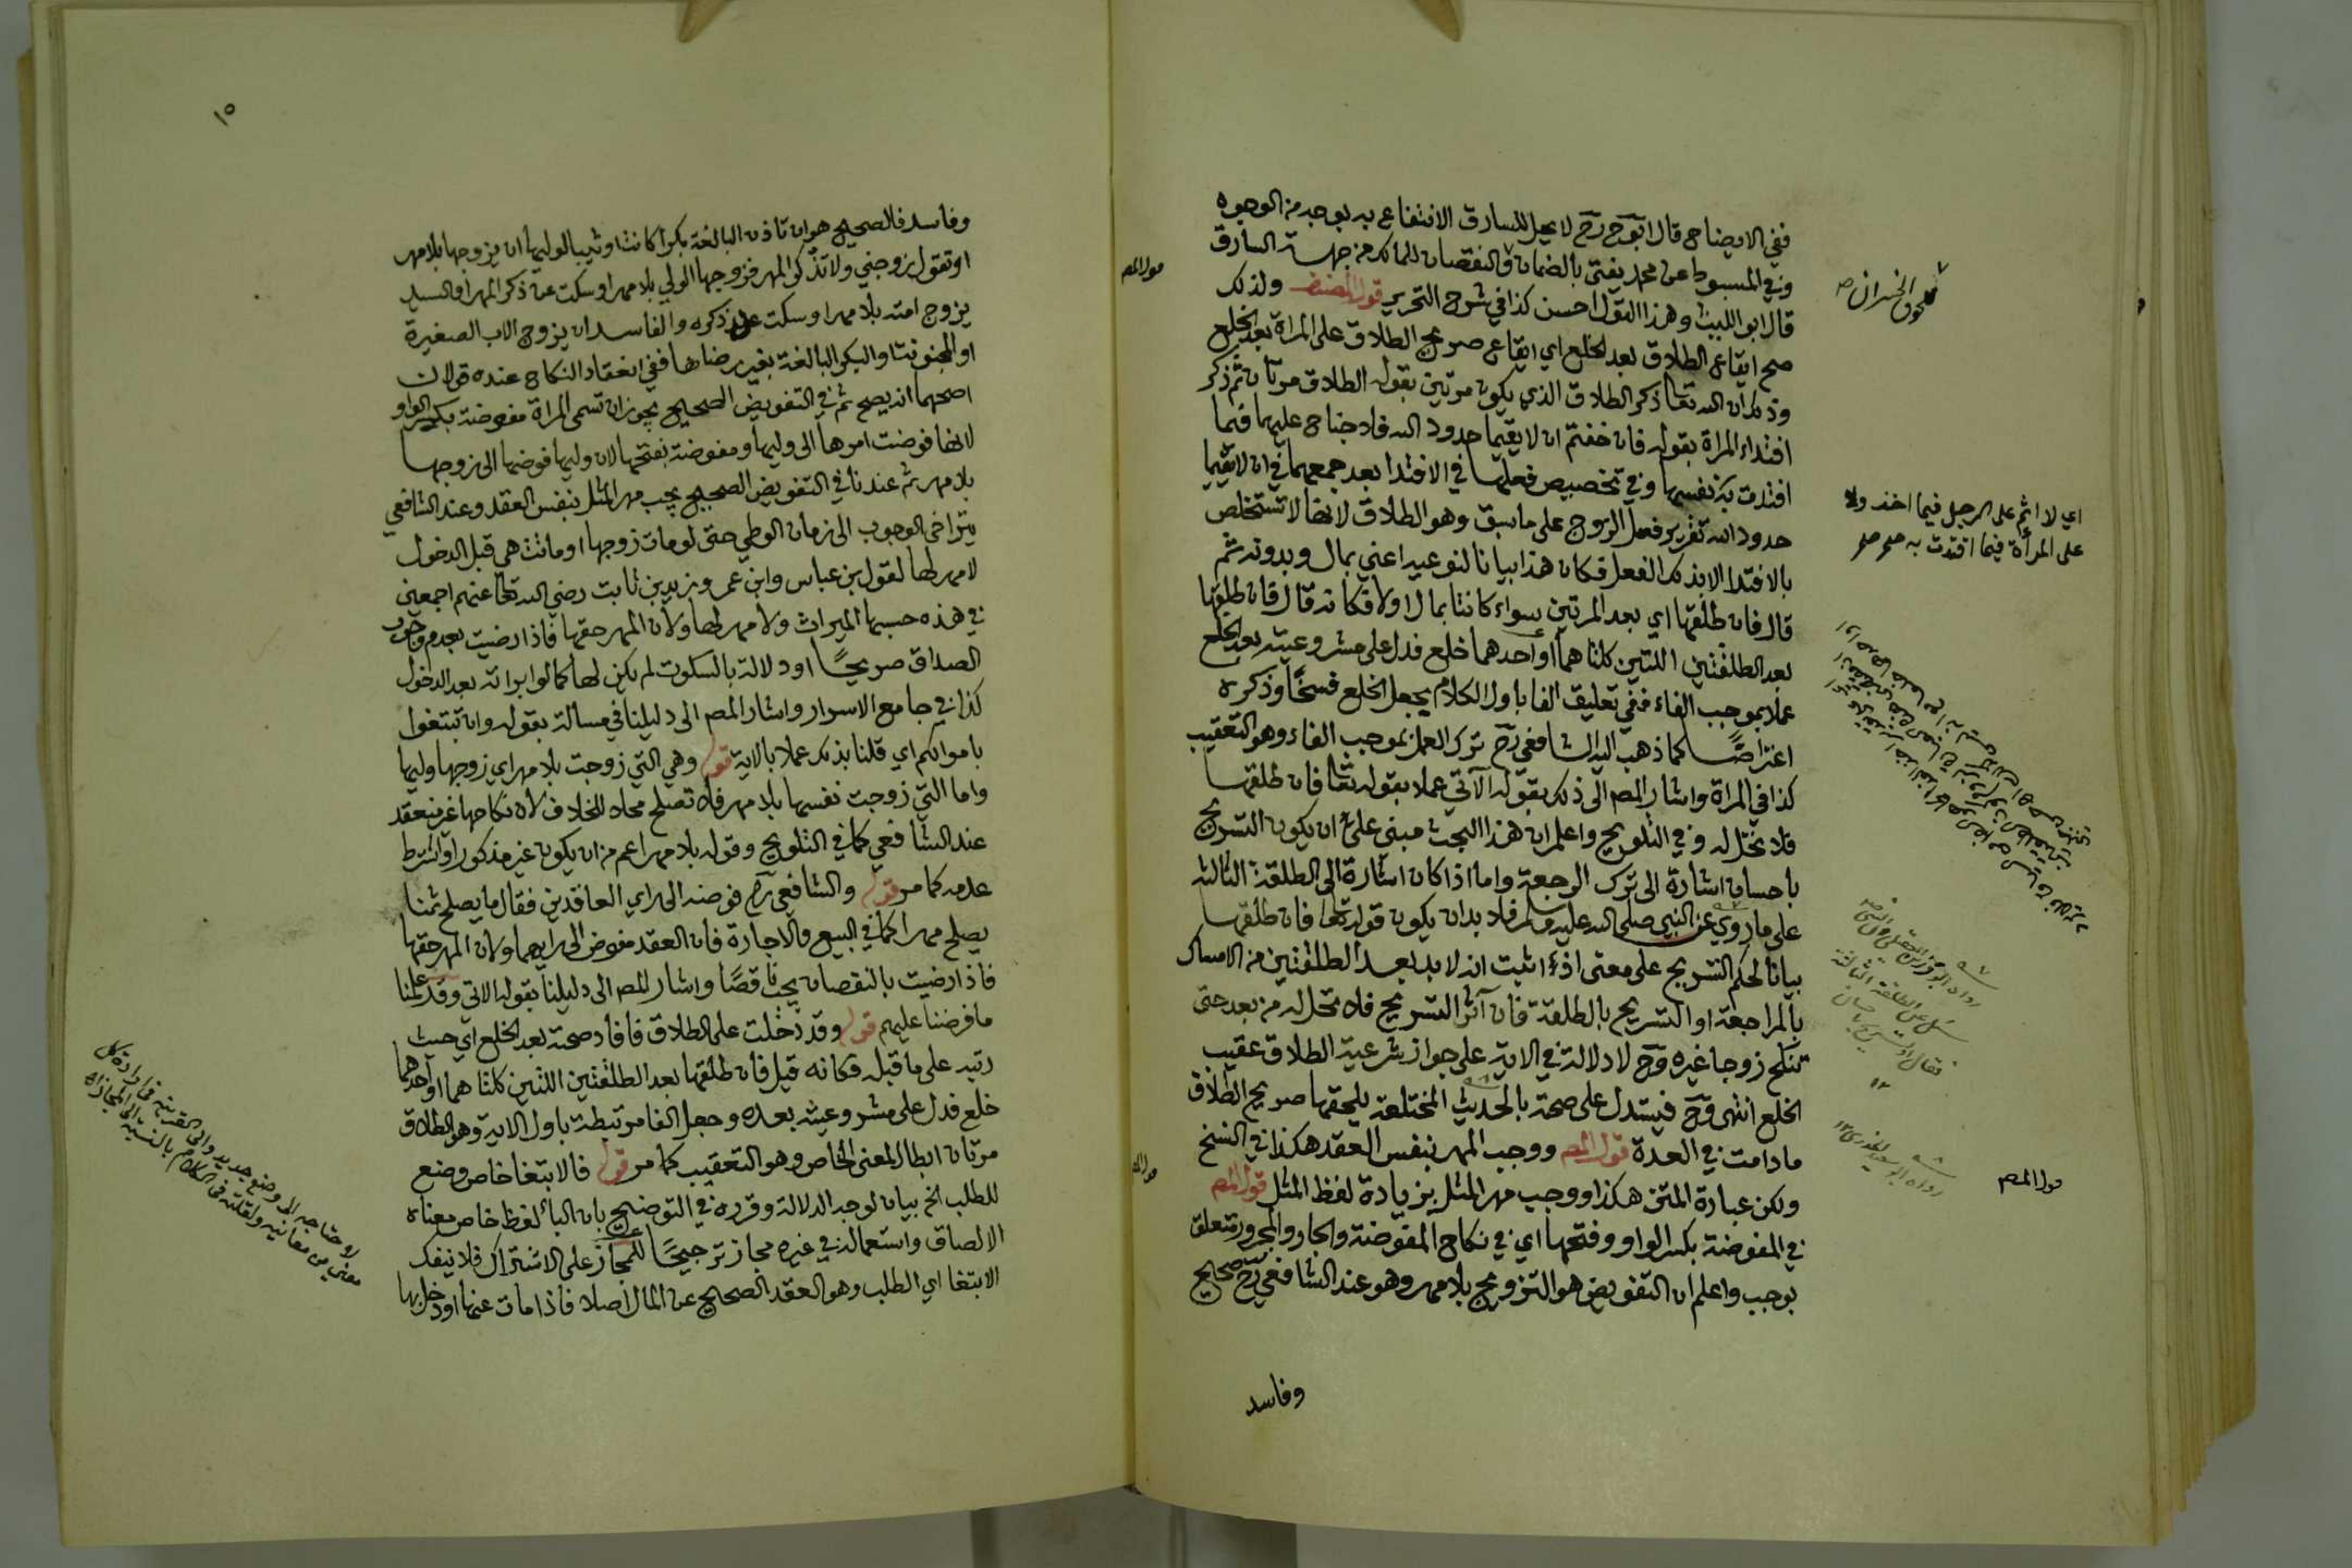 ففي الايضاح قال ابو ح رح لا يحل للسارق الانتفاع به بوجه من الوجوه
وفي المبسوط عن محمد يفتى بالضمان والنقصان للمالك من جهة السارق
قال ابو الليث وهذا القول احسن كذا في شرح التحرير قول المصنف ولذلك
صح ايقاع الطلاق بعد الخلع اي ايقاع صريح الطلاق على المراة بعد الخلع
وذلك ان الله تعا ذكر الطلاق الذي يكون مرتين بقوله الطلاق مرتان ثم ذكر
افتداء المراة بقوله فان خفتم ان لا يقيما حدود الله فلا جناح عليهما فيما
افتدت به نفسها وفي تخصيص فعلها في الافتدا بعد جمعهما في ان لا يقيما
حدود الله تقرير فعل الزوج على ما سبق وهو الطلاق لانها لا تستخلص
بالافتدا الا بذلك الفعل فكان هذا بيانا لنوعيه اعني بمال وبدونه ثم
قال فان طلقها اي بعد المرتين سواء كانتا بمال اولا فكانه قال فان طلقها
بعد الطلقتين اللتين كلتاهما او احدهما خلع فدل على مشروعيته بعد الخلع
عملا بموجب الفاء ففي تعليق الفا باول الكلام يجعل الخلع فسخا وذكره
اعتراضا كما ذهب اليه الشافعي رح ترك العمل بموجب الفاء وهو التعقيب
كذا في المراة واشار المص الى ذلك بقوله الآتي عملا بقوله تعا فان طلقها
فلا تحل له وفي التلويح واعلم ان هذا البحث مبني على ان يكون التسريح
باحسان اشارة الى ترك الرجعة واما اذا كان اشارة الى الطلقة الثالثه
على ما روي عن النبي صلى الله عليه وسلم فلا بد ان يكون قوله تعا فان طلقها
بيانا لحكم التسريح على معنى اذا ثبت انه لا بد بعد الطلقتين من الامساك
بالمراجعة او التسريح بالطلقة فان آثر التسريح فلا تحل له من بعد حتى
تنكح زوجا غيره وح لا دلالة في الاية على جواز شرعية الطلاق عقيب
الخلع انتهى وح فيستدل على صحة بالحديث المختلعة يلحقها صريح الطلاق
ما دامت في العدة قول المص ووجب المهر بنفس العقد هكذا في النسخ
ولكن عبارة المتن هكذا ووجب مهر المثل بزيادة لفظ المثل قول المص
في المفوضة بكسر الواو وفتحها اي في نكاح المفوضة والجار والمجرور متعلق
بوجب واعلم ان التفويض هو التزويج بلا مهر وهو عند الشافعي رح صحيح
وفاسد
اي لا اثم على الرجل فيما اخذ ولا
على المرأة فيما افتدت به
سئل عن الطلقة الثالثة
فقال او تسريح باحسان
١٢
قول المص
١٥
وفاسد فالصحيح هو ان تاذن البالغة بكرا كانت او ثيبا لوليها ان يزوجها بلا مهر
او تقول زوجني ولا تذكر المهر فزوجها الولي بلا مهر او سكت عن ذكر المهر او السيد
يزوج امته بلا مهر او سكت عن ذكره والفاسد ان يزوج الاب الصغيرة
او المجنونة او البكر البالغة بغير رضاها ففي انعقاد النكاح عنده قولان
اصحهما انه يصح ثم في التفويض الصحيح يجوز ان تسمى المراة مفوضة بكسر الواو
لانها فوضت امرها الى وليها ومفوضة بفتحها لان وليها فوضها الى زوجها
بلا مهر ثم عندنا في التفويض الصحيح يجب مهر المثل بنفس العقد وعند الشافعي
يتراخى الوجوب الى زمان الوطي حتى لو مات زوجها او ماتت هي قبل الدخول
لا مهر لها لقول بن عباس وابن عمر وزيد بن ثابت رضي الله تعا عنهم اجمعين
في هذه حسبها الميراث ولا مهر لها ولان المهر حقها فاذا رضيت بعدم وجوب
الصداق صريحا او دلالة بالسكوت لم يكن لها كما لو ابراته بعد الدخول
كذا في جامع الاسرار واشار المص الى دليلنا في مسالة بقوله وان تبتغوا
باموالكم اي قلنا بذلك عملا بالاية قوله وهي التي زوجت بلا مهر اي زوجها وليها
واما التي زوجت نفسها بلا مهر فلا تصلح محلا للخلاف لان نكاحها غير منعقد
عند الشافعي كما في التلويح وقوله بلا مهر اعم من ان يكون غير مذكور او اشترط
عدمه كما مر قوله والشافعي رح فوضه الى راي العاقدين فقال ما يصلح ثمنا
يصلح مهرا كما في البيع والاجارة فان العقد مفوض الى رايهما ولان المهر حقها
فاذا رضيت بالنقصان يجب ناقصا واشار المص الى دليلنا بقوله الاتي وقد علمنا
ما فرضنا عليهم قوله وقد دخلت على الطلاق فافاد صحة بعد الخلع اي حيث
رتبه على ما قبله فكانه قيل فان طلقها بعد الطلقتين اللتين كلتاهما او احدهما
خلع فدل على مشروعيته بعده وجعل الفا مرتبطة باول الاية وهو الطلاق
مرتان ابطال المعنى الخاص وهو التعقيب كما مر قوله فالابتغا خاص وضع
للطلب الخ بيان لوجه الدلالة وقرره في التوضيح بان البا لفظ خاص معناه
الالصاق واستعماله في غيره مجاز ترجيحا للمجاز على الاشتراك فلا ينفك
الابتغا اي الطلب وهو العقد الصحيح عن المال اصلا فاذا مات عنها او دخل بها